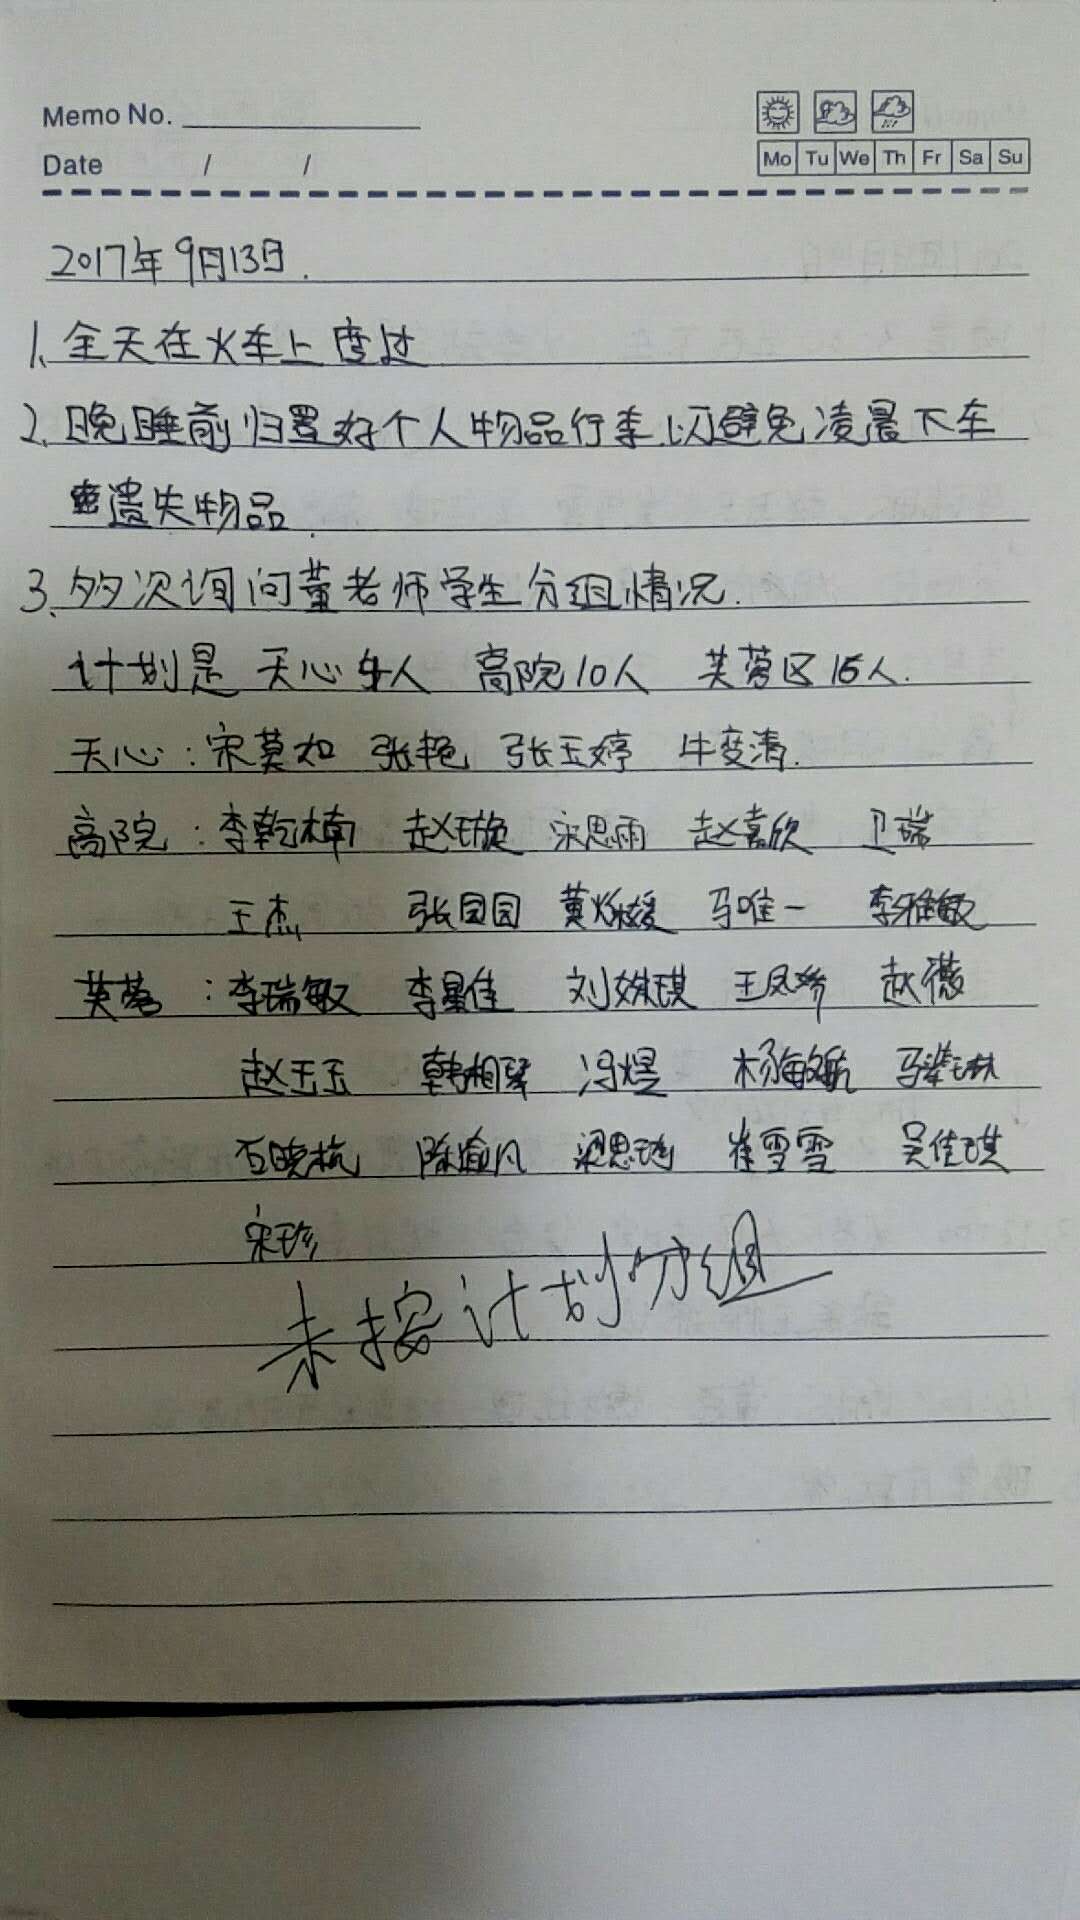 Memo No.
Mo Tu We Th Fr Sa Su
Date / /
2017年9月13日.
1、全天在火车上度过
2、晚睡前归置好个人物品行李,以避免凌晨下车
遗失物品.
3、多次询问董老师学生分组情况.
计划是 天心4人 高院10人 芙蓉区15人.
天心:宋莫如 张艳 张玉婷 牛变清.
高院:李乾楠 赵珏璇 宋思雨 赵嘉欣 卫瑞
王杰 张园园 黄媛 马唯一 李雅敏
芙蓉:李瑞敏 李星佳 刘姝琪 王凤娇 赵薇
赵玉玉 韩相琴 冯煜 杨敏航 马梁琳
石晓杭 陈渝凡 梁思琦 崔雪雪 吴佳琪
宋珍
未按计划分组